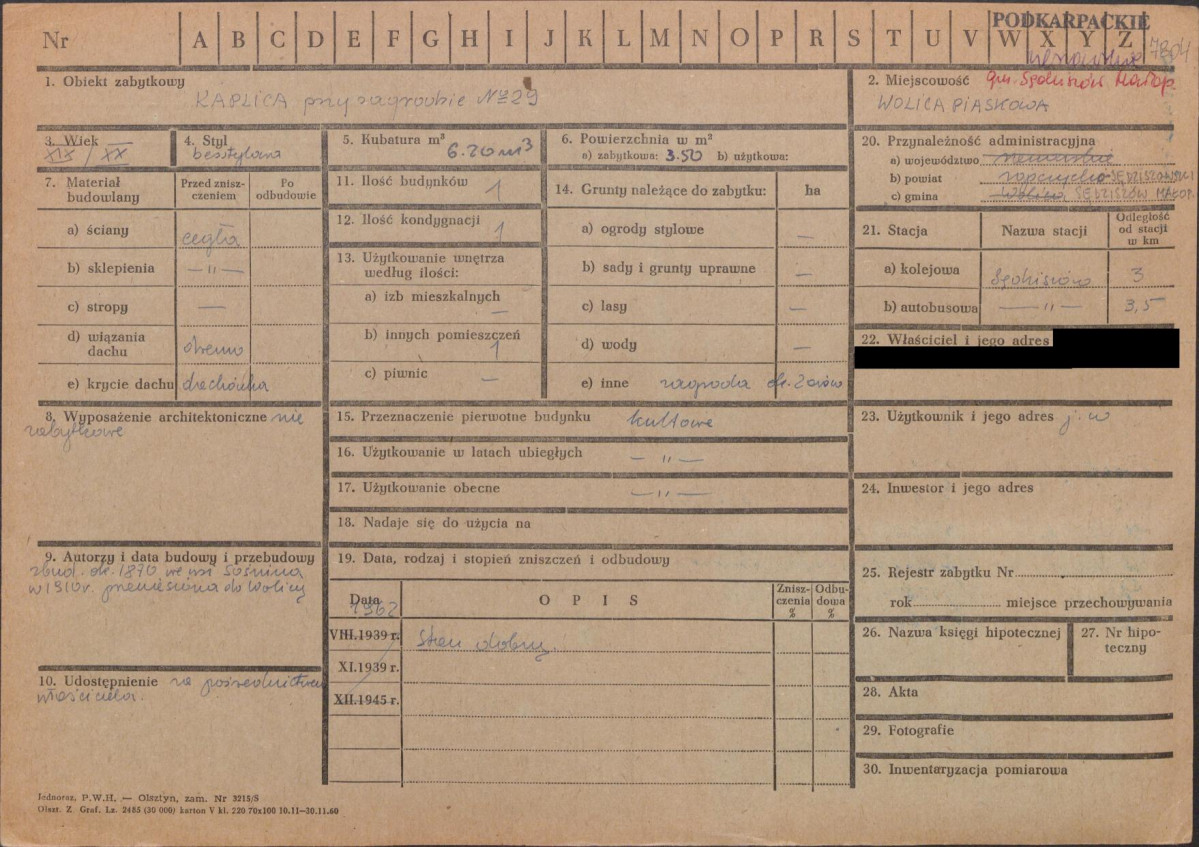 PODKARPACKIE
Nr A B C D E F G H I J K L M N O P R S T U V W X Y Z 7804
1. Obiekt zabytkowy
KAPLICA przy zagrodzie № 29
2. Miejscowość gm. Sędziszów Małop.
WOLICA PIASKOWA
3. Wiek
XIX / XX
4. Styl
bezstylowa
5. Kubatura m³
6.20 m³
6. Powierzchnia w m²
a) zabytkowa: 3.50 b) użytkowa:
7. Materiał budowlany
Przed zniszczeniem
Po odbudowie
a) ściany cegła
b) sklepienia —"—
c) stropy —
d) wiązania dachu drewno
e) krycie dachu dachówka
8. Wyposażenie architektoniczne nie
zabytkowe
9. Autorzy i data budowy i przebudowy
zbud. ok. 1870 we wsi Sośnina
w 1910r. przeniesiona do Wolicy
10. Udostępnienie za pośrednictwem
właściciela.
11. Ilość budynków 1
12. Ilość kondygnacji 1
13. Użytkowanie wnętrza
według ilości:
a) izb mieszkalnych —
b) innych pomieszczeń 1
c) piwnic —
14. Grunty należące do zabytku: ha
a) ogrody stylowe —
b) sady i grunty uprawne —
c) lasy —
d) wody —
e) inne zagroda ok.
15. Przeznaczenie pierwotne budynku kultowe
16. Użytkowanie w latach ubiegłych —"—
17. Użytkowanie obecne —"—
18. Nadaje się do użycia na
19. Data, rodzaj i stopień zniszczeń i odbudowy
Data OPIS Zniszczenia % Odbudowa %
1962
VIII.1939 r. Stan dobry.
XI.1939 r.
XII.1945 r.
20. Przynależność administracyjna
a) województwo rzeszowskie
b) powiat ropczycko-SĘDZISZOWSKI
c) gmina Wolica SĘDZISZÓW MAŁOP.
21. Stacja Nazwa stacji Odległość od stacji w km
a) kolejowa Sędziszów 3
b) autobusowa —"— 3,5
22. Właściciel i jego adres
23. Użytkownik i jego adres j. w
24. Inwestor i jego adres
25. Rejestr zabytku Nr
rok miejsce przechowywania
26. Nazwa księgi hipotecznej
27. Nr hipoteczny
28. Akta
29. Fotografie
30. Inwentaryzacja pomiarowa
Jednoraz. P.W.H. — Olsztyn, zam. Nr 3215/S
Olszt. Z Graf. Lz. 2485 (30 000) karton V kl. 220 70x100 10.11—30.11.60